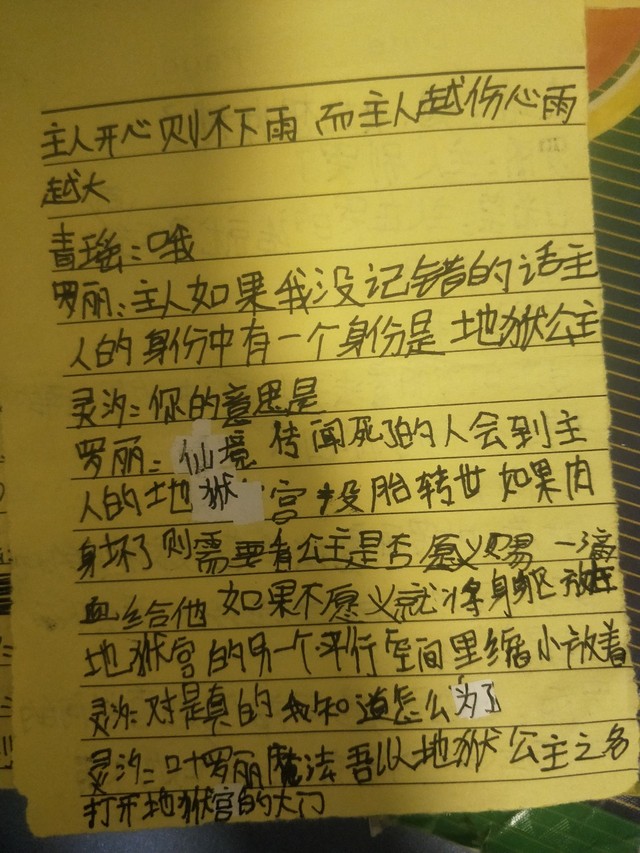 主人开心则不下雨 而主人越伤心雨
越大
青瑶:哦
罗丽:主人如果我没记错的话主
人的身份中有一个身份是 地狱公主
灵汐:你的意思是
罗丽:仙境 传闻死了的人会到主
人的地狱宫 投胎转世 如果肉
身坏了则需要看公主是否愿义赐一滴
血给他 如果不愿义就将身躯放在
地狱宫的另一个平行空间里缩小放着
灵汐:对是真的 我知道怎么为了
灵汐:叶罗丽魔法 吾以地狱公主之名
打开地狱宫的大门